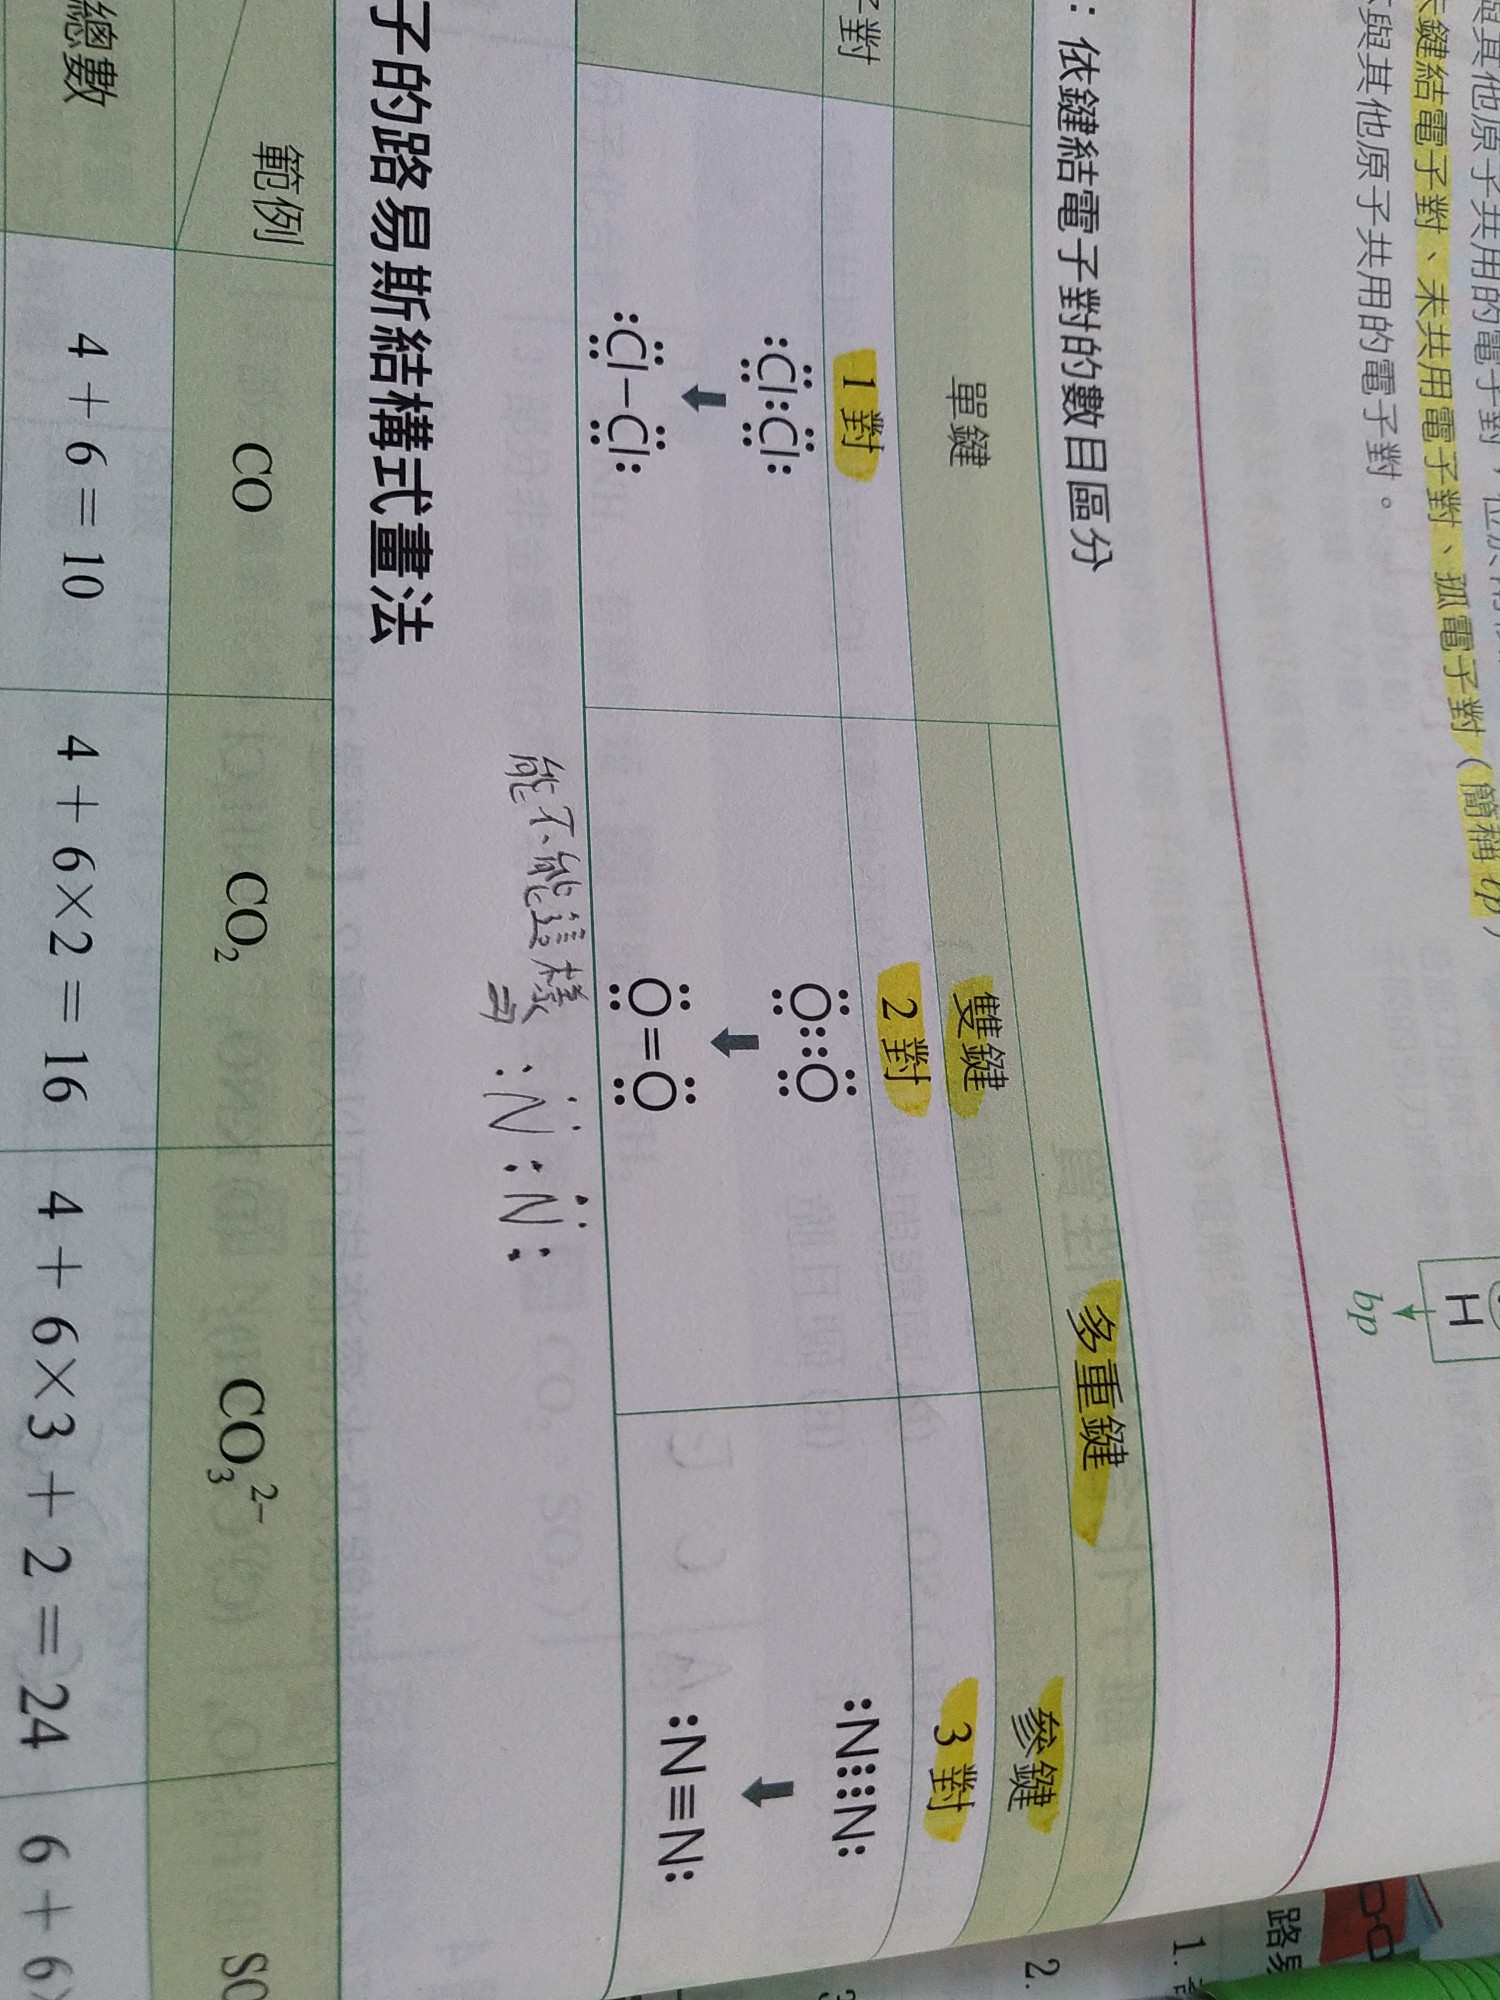 與其他原子共用的電子對，位於
鍵結電子對、未共用電子對、孤電子對（簡稱 lp）
與其他原子共用的電子對。
H
bp
：依鍵結電子對的數目區分
單鍵
多重鍵
雙鍵
參鍵
子對
1 對
2 對
3 對
:Cl:Cl:
O::O
:N:::N:
:Cl–Cl:
O=O
:N≡N:
能不能這樣
:N:N:
子的路易斯結構式畫法
範例
CO
CO₂
CO₃²⁻
SO
總數
4 + 6 = 10
4 + 6×2 = 16
4 + 6×3 + 2 = 24
6 + 6×
路易
1.
2.
3